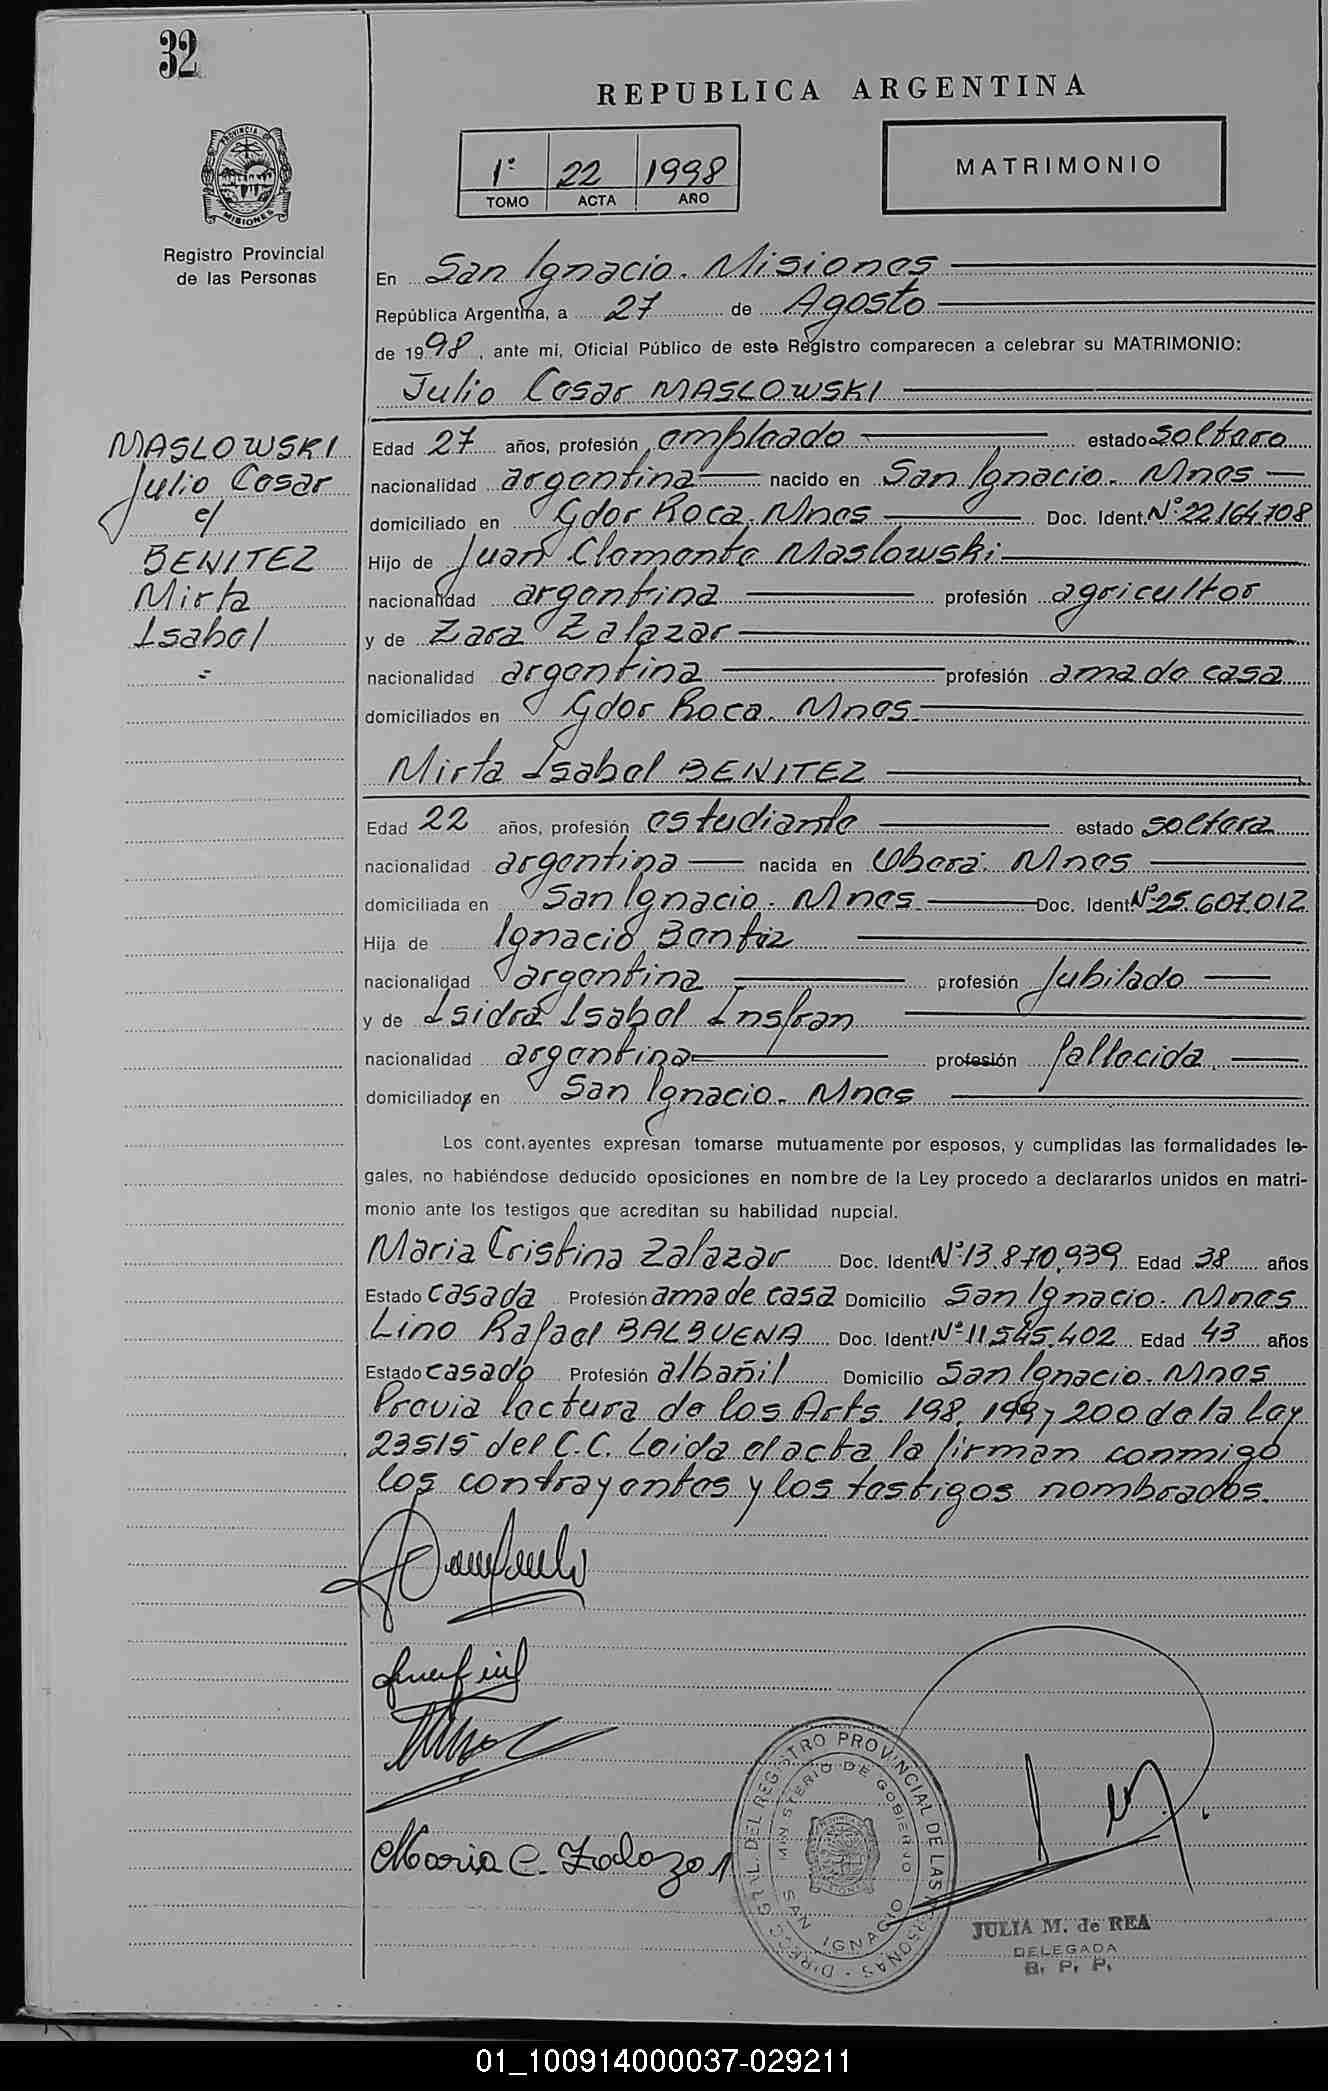 32
REPUBLICA ARGENTINA
1º 22 1998
TOMO ACTA AÑO
MATRIMONIO
PROVINCIA DE MISIONES
Registro Provincial
de las Personas
En San Ignacio. Misiones
República Argentina, a 27 de Agosto
de 1998, ante mi, Oficial Público de este Registro comparecen a celebrar su MATRIMONIO:
Julio Cesar MASLOWSKI
MASLOWSKI
Julio Cesar
c/
BENITEZ
Mirta
Isabel
=
Edad 27 años, profesión empleado estado soltero
nacionalidad argentina nacido en San Ignacio. Mnes
domiciliado en Gdor Roca. Mnes Doc. Ident. Nº 22.164.708
Hijo de Juan Clemente Maslowski
nacionalidad argentina profesión agricultor
y de Zara Zalazar
nacionalidad argentina profesión ama de casa
domiciliados en Gdor Roca. Mnes
Mirta Isabel BENITEZ
Edad 22 años, profesión estudiante estado soltera
nacionalidad argentina nacida en Oberá. Mnes
domiciliada en San Ignacio. Mnes Doc. Ident. Nº 25.607.012
Hija de Ignacio
nacionalidad argentina profesión Jubilado
y de Isidra Isabel Insfran
nacionalidad argentina profesión fallecida.
domiciliados en San Ignacio. Mnes
Los cont.ayentes expresan tomarse mutuamente por esposos, y cumplidas las formalidades le-
gales, no habiéndose deducido oposiciones en nombre de la Ley procedo a declararlos unidos en matri-
monio ante los testigos que acreditan su habilidad nupcial.
Maria Cristina Zalazar Doc. Ident. Nº 13.870.939 Edad 38 años
Estado casada Profesión ama de casa Domicilio San Ignacio. Mnes
Lino Rafael BALBUENA Doc. Ident. Nº 11.545.402 Edad 43 años
Estado casado Profesión albañil Domicilio San Ignacio. Mnes
Previa lectura de los Arts 198, 199 y 200 de la Ley
23515 del C.C. Leida el acta la firman conmigo
los contrayentes y los testigos nombrados.
Maria C. Zalazar
DIRECC. GRAL. DEL REGISTRO PROVINCIAL DE LAS PERSONAS
MINISTERIO DE GOBIERNO
SAN IGNACIO
JULIA M. de REA
DELEGADA
R. P. P.
01_100914000037-029211